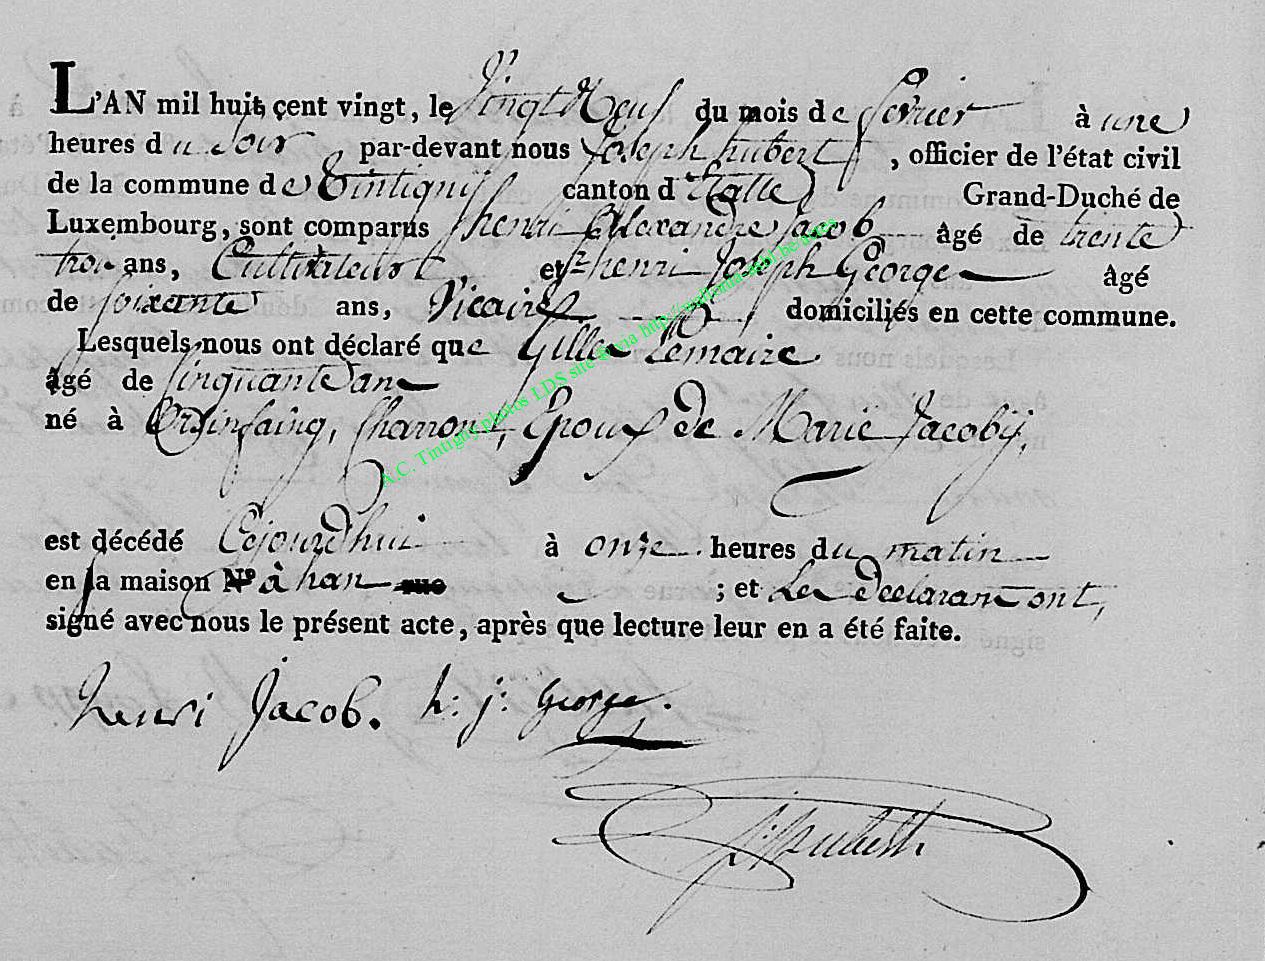 L'AN mil huit cent vingt, le Vingt Neuf du mois de fevrier à une
heures du Soir par-devant nous Joseph hubert, officier de l'état civil
de la commune de Tintigny canton d'Etalle Grand-Duché de
Luxembourg, sont comparus henri Allexandre Jacob âgé de trente
trois ans, Cultivateur, et henri Joseph George âgé
de soixante ans, Vicaire domiciliés en cette commune.
Lesquels nous ont déclaré que Gille Lemaire
âgé de Cinquante an
né à Orsinfaing, Charron, Epoux de Marie Jacoby,
est décédé Cejourdhui à onze heures du matin
en la maison Nº à han rue ; et Les Declarant ont,
signé avec nous le présent acte, après que lecture leur en a été faite.
henri Jacob. h: j: George.
J: hubert
A.C. Tintigny photos LDS site via http://